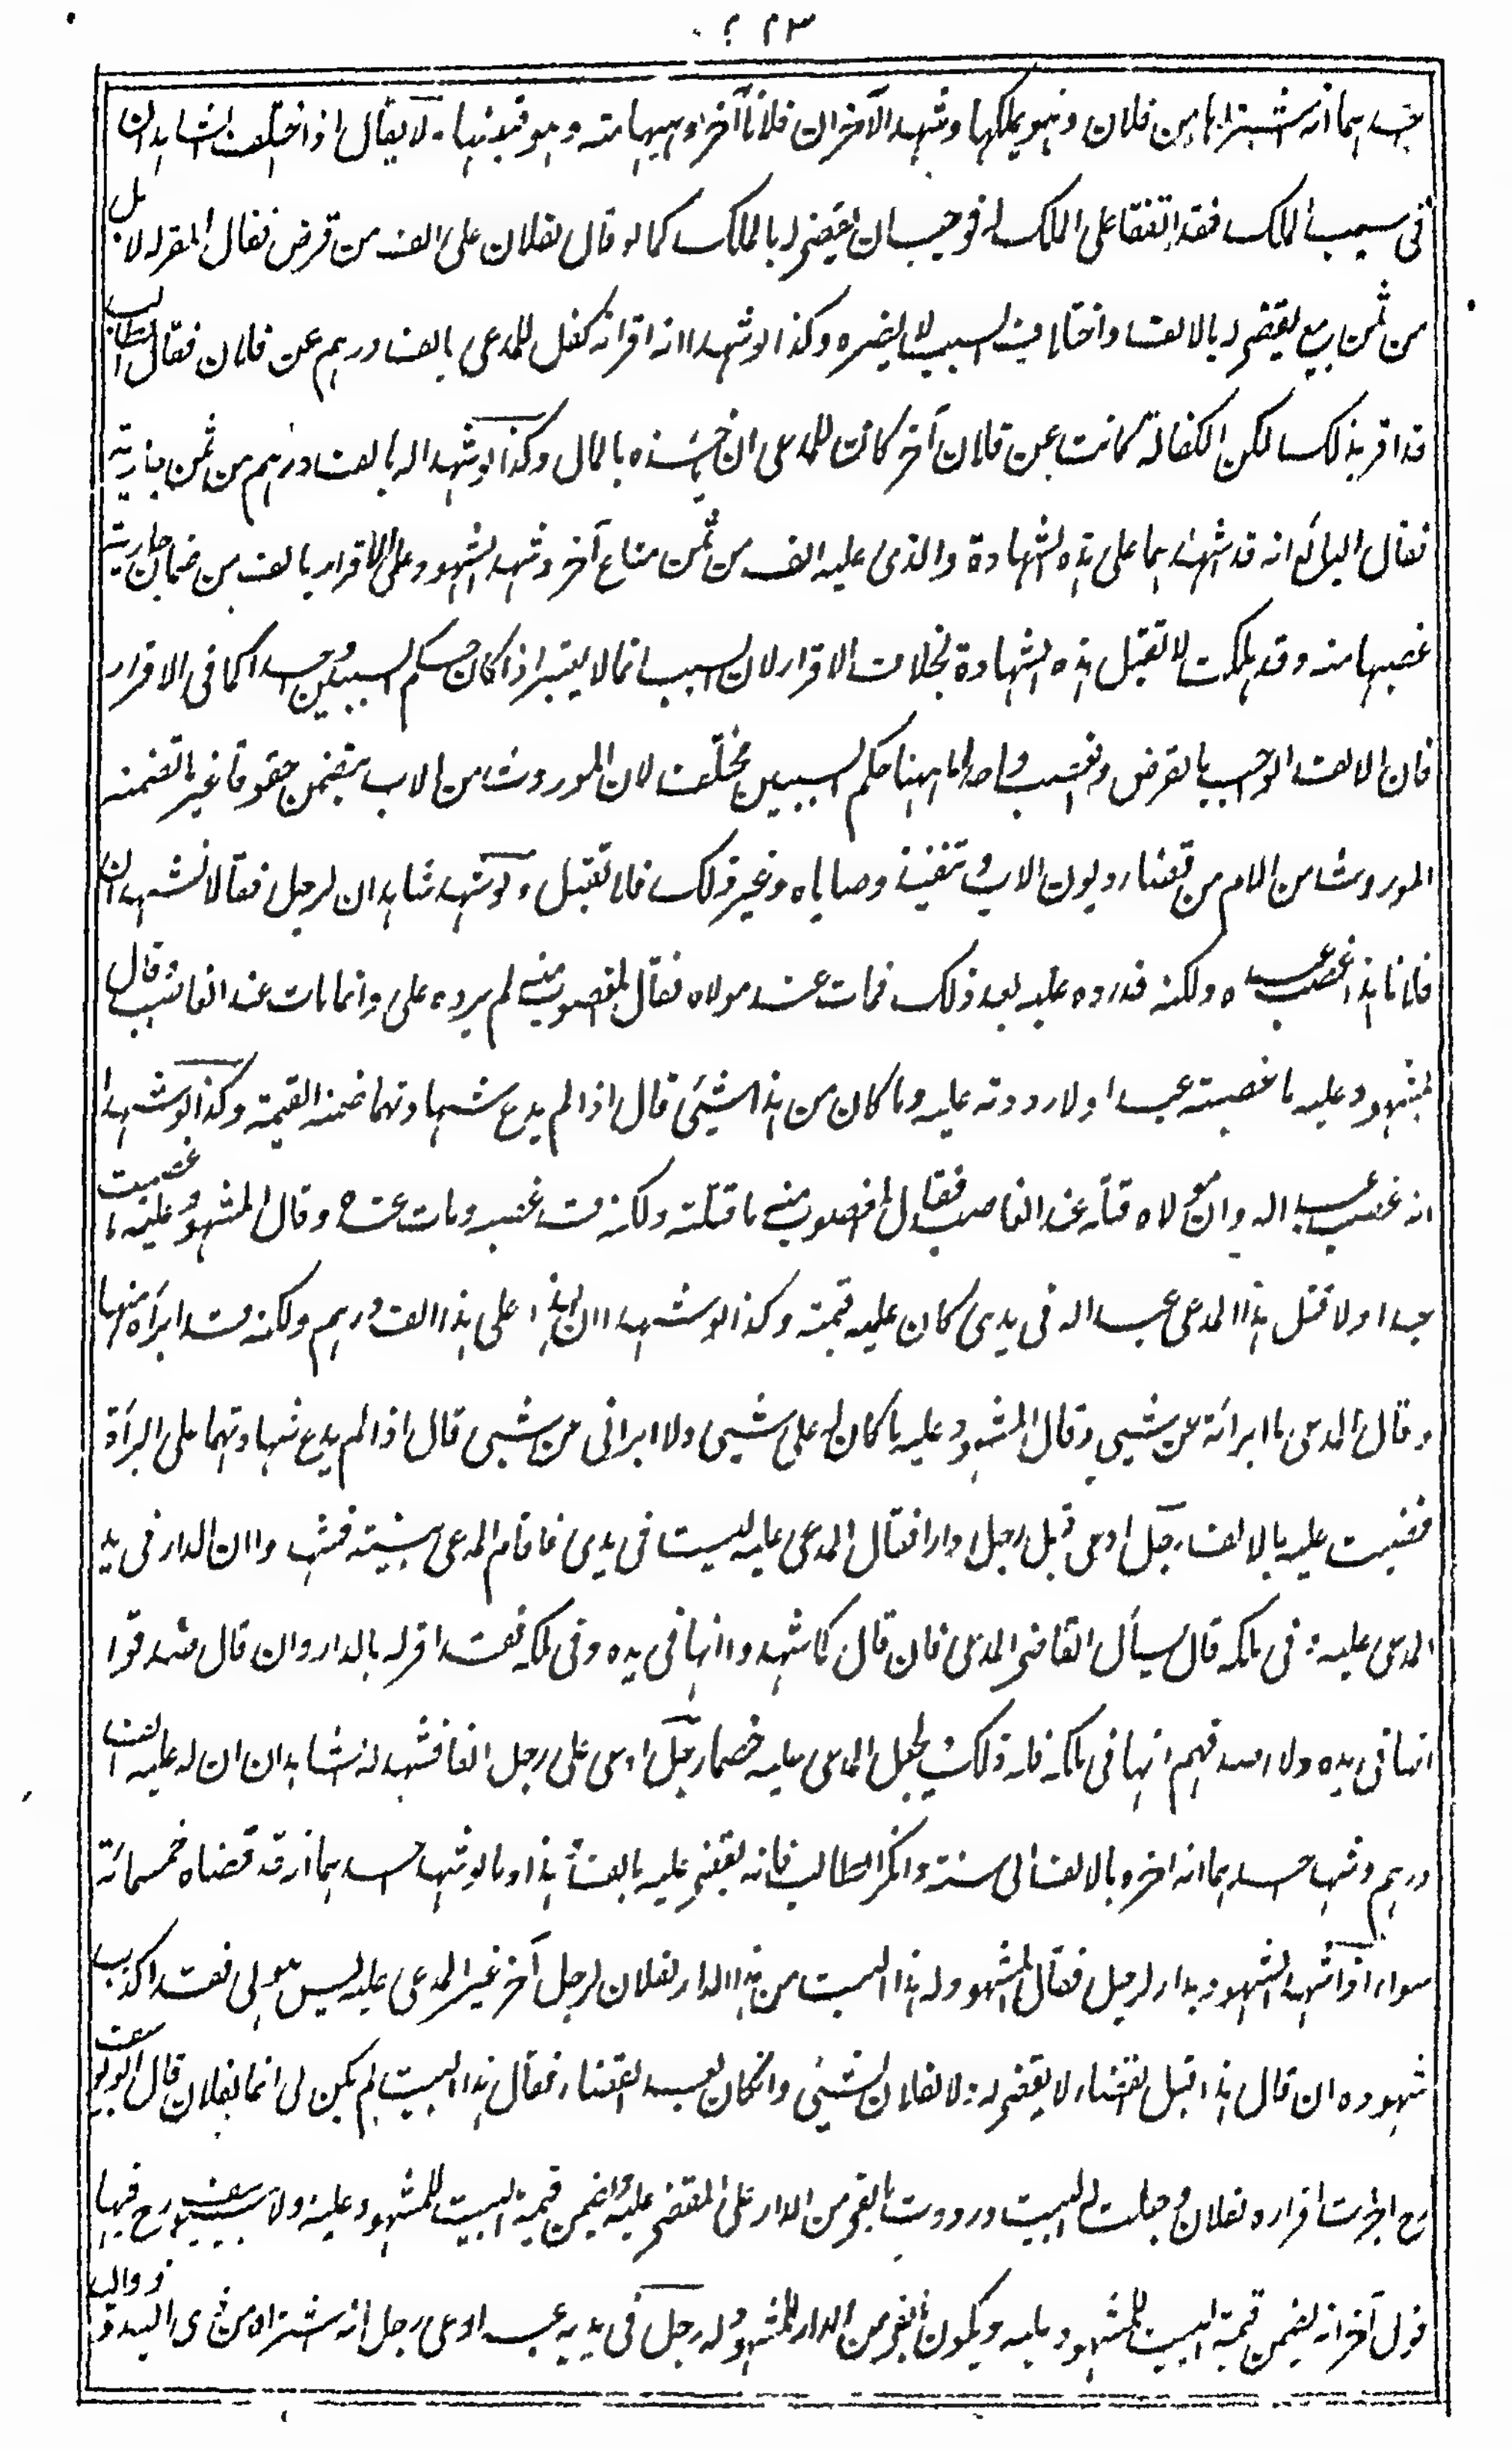 احدهما انه اشتراها من فلان وهو يملكها وشهد الآخر ان فلانا آخر وهبها منه وهو قبضها لا يقال اذا اختلف الشاهدان
فى سبب الملك فقد اتفقا على الملك له فوجب ان يقضى له بالملك كما لو قال لفلان على الف من قرض فقال المقر له لا بل
من ثمن بيع يقضى له بالالف واختلاف السبب لا يضره وكذا لو شهدا انه اقر انه كفل للمدعى بالف درهم عن فلان فقال الطالب
قد اقر بذلك لكن الكفالة كانت عن فلان آخر كان للمدعى ان يأخذه بالمال وكذا لو شهدا له بالف درهم من ثمن جارية
فقال البائع انه قد اشهدهما على هذه الشهادة والذى عليه الف من ثمن متاع آخر وشهد الشهود على الاقرار بالف من ضمان جارية
غصبها منه وقد هلكت لا تقبل هذه الشهادة بخلاف الاقرار لان السبب انما لا يعتبر اذا كان حكم السببين واحدا كما فى الاقرار
فان الالف الواجب بالقرض والغصب واحد اما ههنا حكم السببين مختلف لان الموروث من الاب يتضمن حقوقا غير ما تضمنه
الموروث من الام من قضاء ديون الاب وتنفيذ وصاياه وغير ذلك فلا تقبل ولو شهد شاهدان لرجل فقالا نشهد ان
فلانا هذا غصب عبده ولكنه قد رده عليه بعد ذلك فمات عند مولاه فقال المغصوب منه لم يرده على وانما مات عند الغاصب وقال
المشهود عليه ما غصبته عبدا ولا رددته عليه وما كان من هذا شيئ قال اذا لم يدع شهادتهما ضمنه القيمة وكذا لو شهدا
انه غصب عبدا له وان مولاه قتله عند الغاصب فقال المغصوب منه ما قتلته ولكنه قد غصبه ومات عنده وقال المشهود عليه ما غصبت
عبدا ولا قتل هذا المدعى عبدا له فى يدى كان عليه قيمته وكذا لو شهدا ان لهذا على هذا الف درهم ولكنه قد ابرأه منها
وقال المدعى ما ابرائه عن شيئ وقال المشهود عليه ما كان له على شيئ ولا ابرانى من شيئ قال اذا لم يدع شهادتهما على البرأة
قضيت عليه بالالف رجل ادعى قبل رجل دارا فقال المدعى عليه ليست فى يدى فاقام المدعى بينة فشهدوا ان الدار فى يد
المدعى عليه وفى ملكه قال يسأل القاضى المدعى فان قال كما شهدوا انها فى يده وفى ملكه فقد اقر له بالدار وان قال صدقوا
انها فى يده ولا اصدقهم انها فى ملكه فله ذلك ويجعل المدعى عليه خصما رجل ادعى على رجل الفا فشهد له شاهدان ان له عليه الف
درهم وشهد احدهما انه اخره بالالف الى سنة وانكر الطالب فانه يقضى عليه بالف هذا وما لو شهد احدهما انه قد قضاه خمسمائة
سواء اذا شهد الشهود بدار لرجل فقال المشهود له هذا البيت من هذه الدار لفلان لرجل آخر غير المدعى عليه ليس هو لى فقد اكذب
شهوده ان قال هذا قبل القضاء لا يقضى له ولا لفلان بشيئ وان كان بعد القضاء فقال هذا البيت لم يكن لى انما لفلان قال ابو يوسف
رح اجزت اقراره لفلان وجعلت له البيت ورددت ما بقى من الدار على المقضى عليه واضمن قيمة البيت للمشهود عليه ولابى يوسف رح فيها
قول آخر انه يضمن قيمة البيت للمشهود عليه ويكون ما بقى من الدار للمشهود له رجل فى يديه عبد ادعى رجل انه اشتراه من ذى اليد